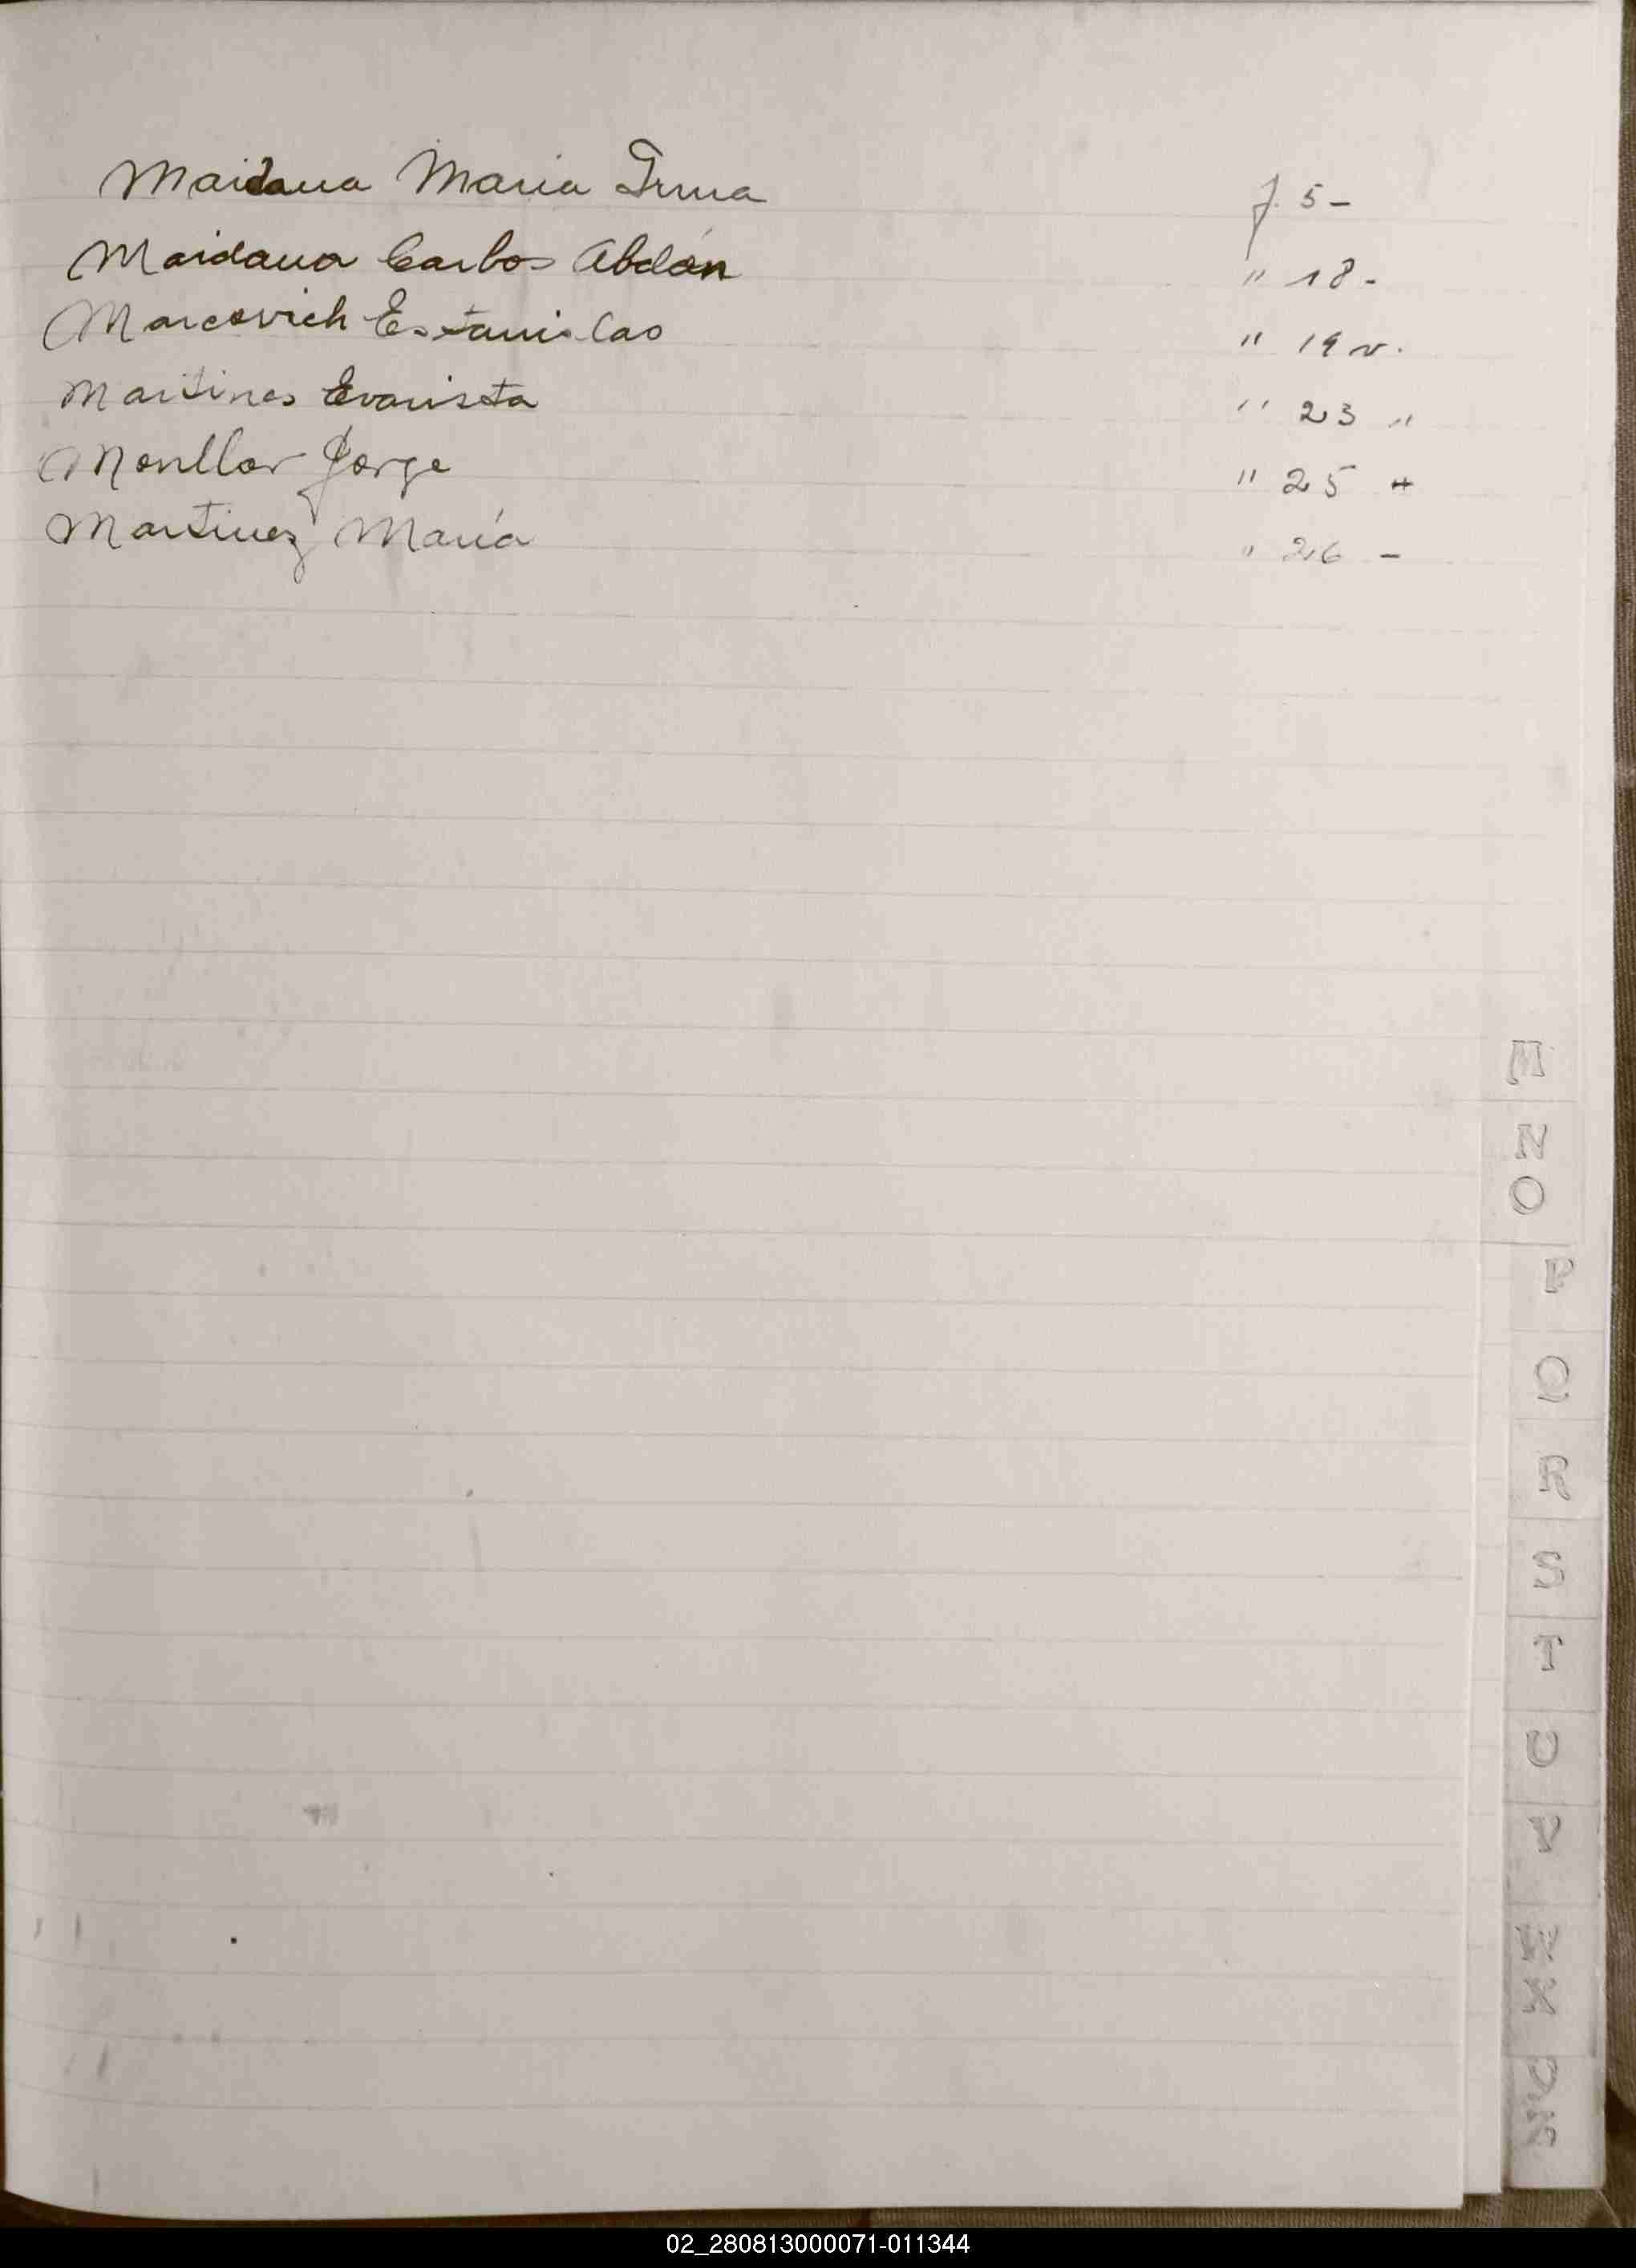 Maidana Maria Irma f. 5 -
Maidana Carlos Abdón " 18 -
Marcovich Estanislao " 19 v.
Martines Evarista " 23 "
Monllor Jorge " 25 "
Martinez María " 26 -
M
N
O
P
Q
R
S
T
U
V
X
02_280813000071-011344